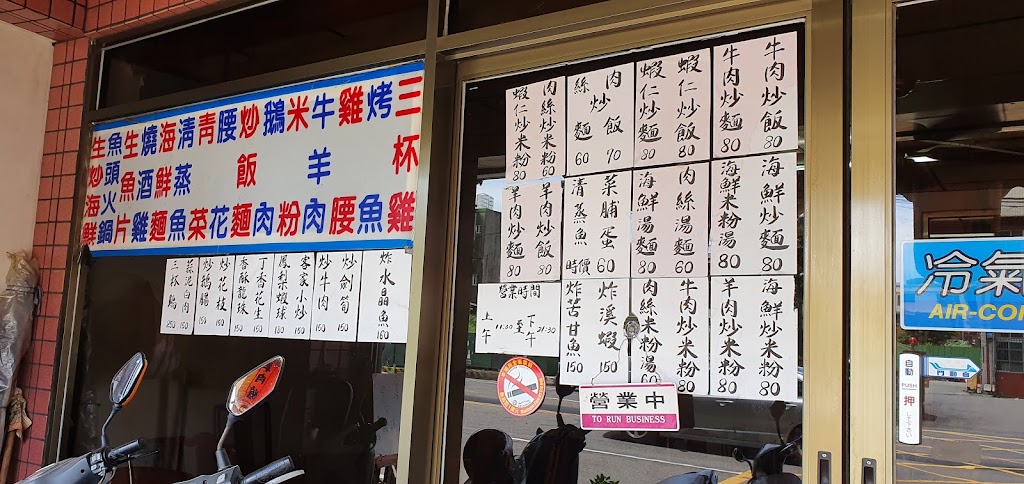 三杯雞
烤魚
雞腰
牛羊肉
米粉
鵝肉
炒飯麵
腰花
青菜
清蒸魚
海鮮麵
燒酒雞
生魚片
魚頭火鍋
生炒海鮮
炸水晶魚 160
炒劍筍 150
炒牛肉 150
客家小炒 150
鳳梨蝦球
丁香花生 150
香酥龍珠 150
炒花枝 150
炒鵝腸 150
蒜泥白肉 150
三杯雞 250
牛肉炒飯 80
牛肉炒麵 80
蝦仁炒飯 80
蝦仁炒麵 80
肉絲炒飯麵 70 60
肉絲炒米粉 60
蝦仁炒米粉 80
海鮮炒麵 80
海鮮米粉湯 80
肉絲湯麵 60
海鮮湯麵 80
菜脯蛋 60
清蒸魚 時價
羊肉炒飯 80
羊肉炒麵 80
海鮮炒米粉 80
羊肉炒米粉 80
牛肉炒米粉 80
肉絲米粉湯 60
炸溪蝦 150
炸苦甘魚 150
營業時間
上午 11:00 至 下午 21:30
營業中
TO RUN BUSINESS
冷氣
AIR-CON
自動
PUSH
押